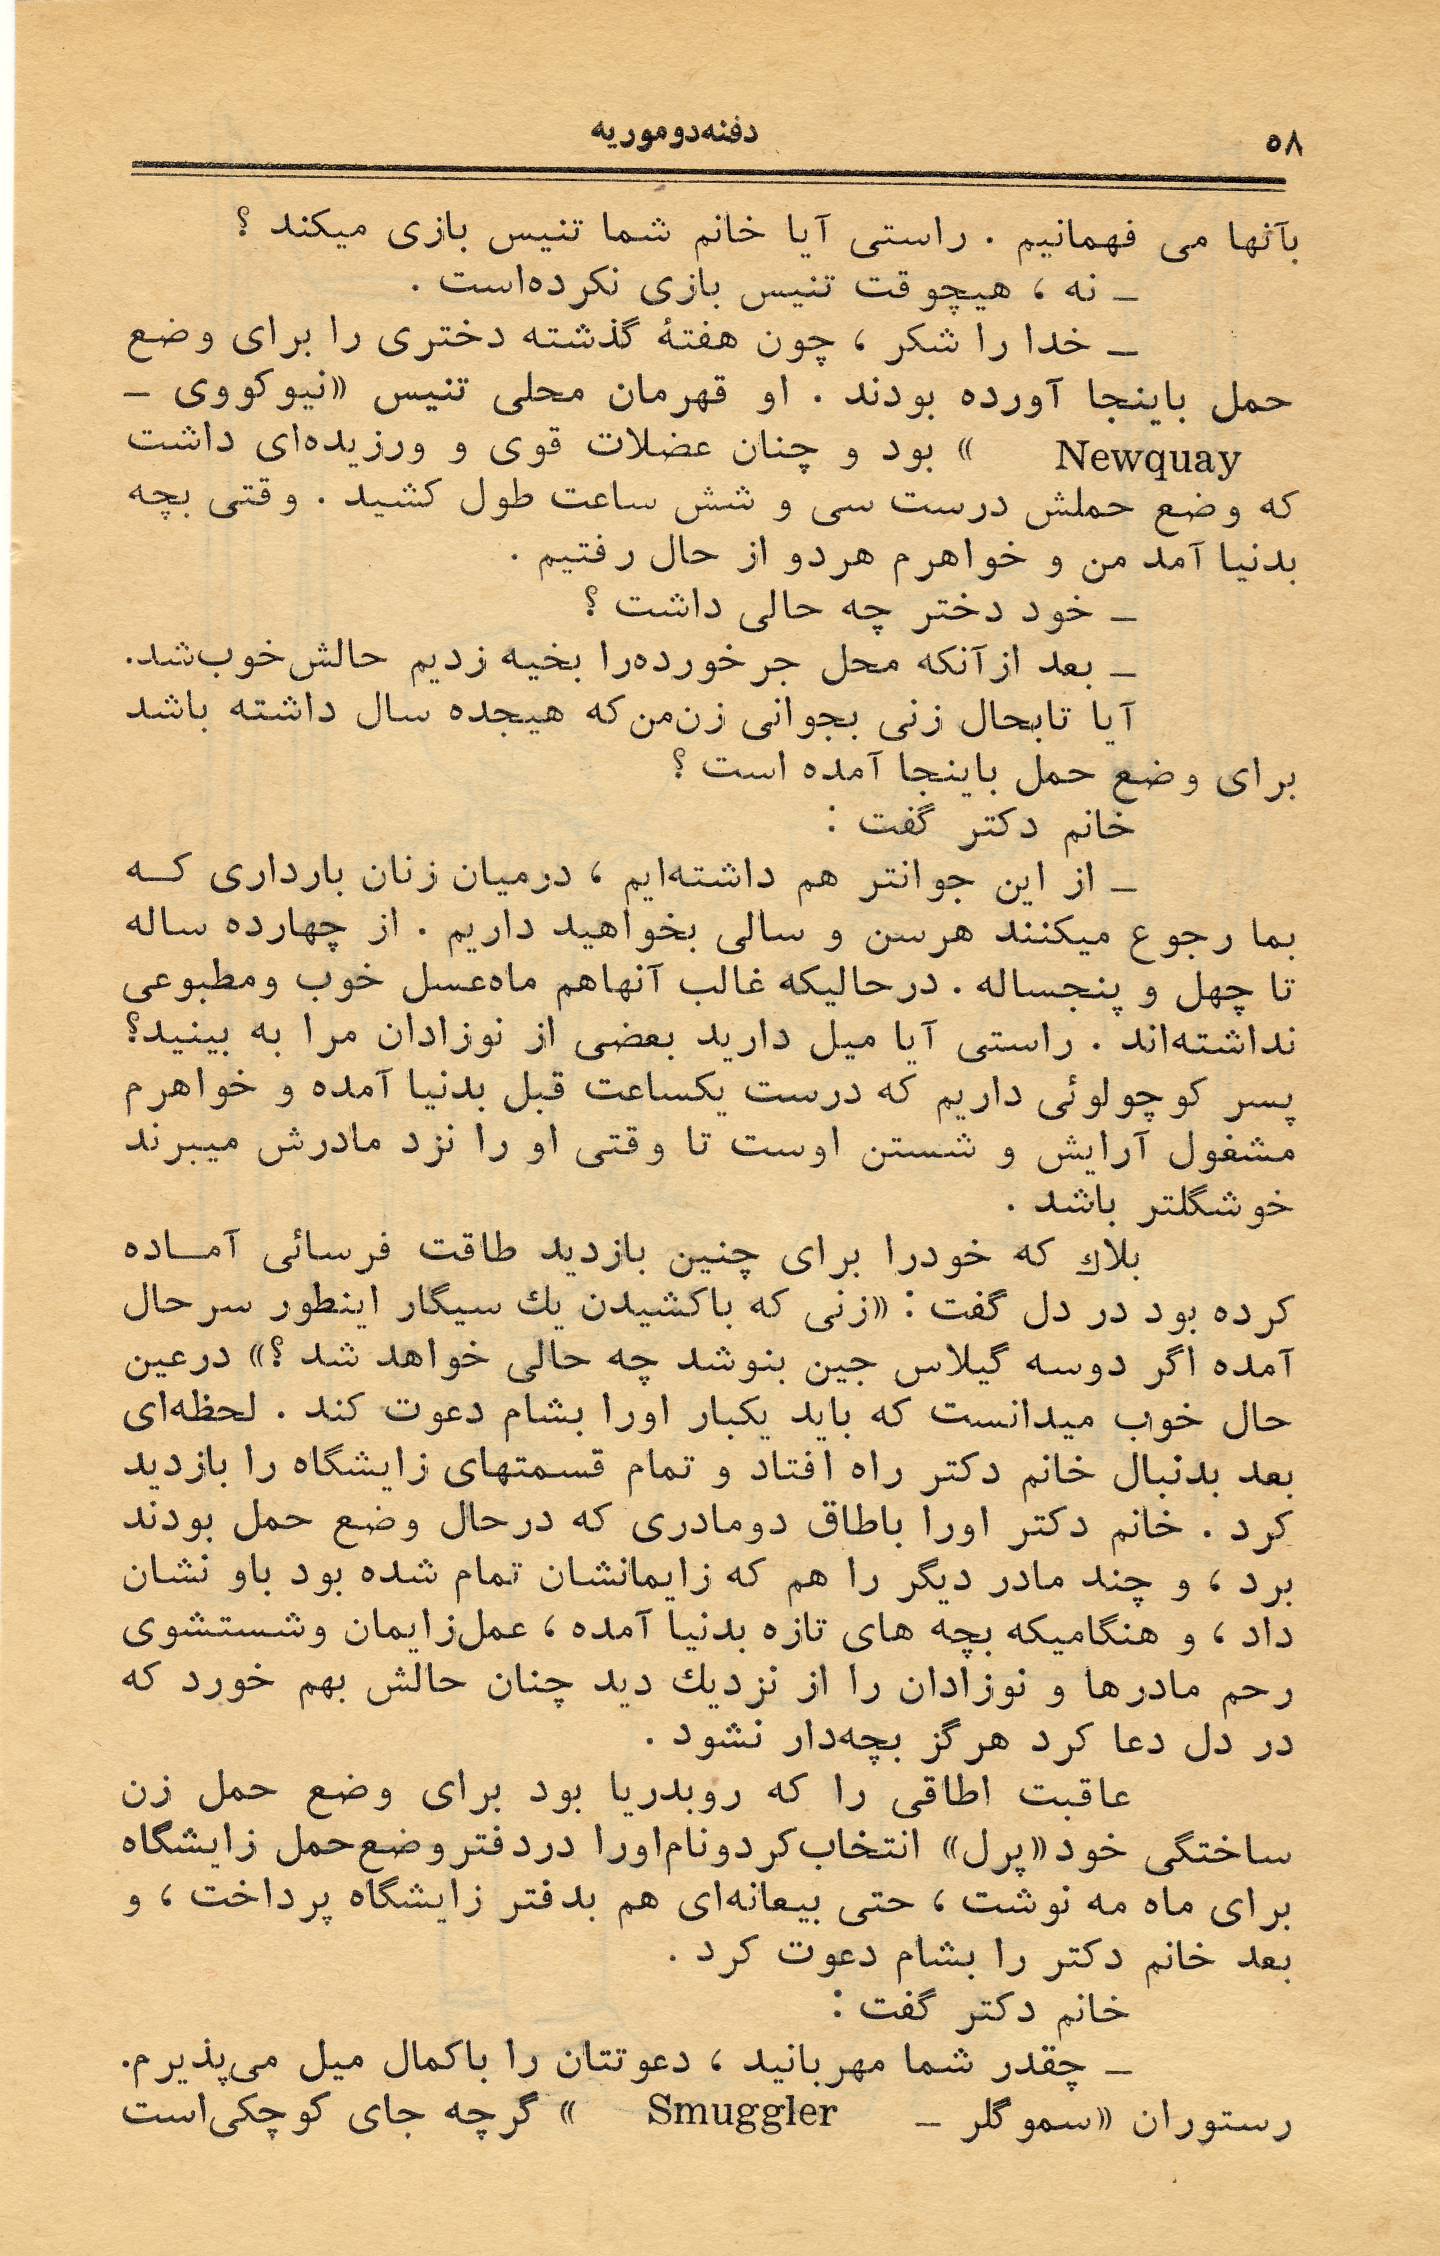 ۵۸
دفنه‌دوموریه
بآنها می فهمانیم . راستی آیا خانم شما تنیس بازی میکند ؟
ـ نه ، هیچوقت تنیس بازی نکرده‌است .
ـ خدا را شکر ، چون هفتهٔ گذشته دختری را برای وضع
حمل باینجا آورده بودند . او قهرمان محلی تنیس «نیوکووی ـ
Newquay » بود و چنان عضلات قوی و ورزیده‌ای داشت
که وضع حملش درست سی و شش ساعت طول کشید . وقتی بچه
بدنیا آمد من و خواهرم هردو از حال رفتیم .
ـ خود دختر چه حالی داشت ؟
ـ بعد ازآنکه محل جرخورده‌را بخیه زدیم حالش‌خوب‌شد.
آیا تابحال زنی بجوانی زن‌من‌که هیجده سال داشته باشد
برای وضع حمل باینجا آمده است ؟
خانم دکتر گفت :
ـ از این جوانتر هم داشته‌ایم ، درمیان زنان بارداری کــه
بما رجوع میکنند هرسن و سالی بخواهید داریم . از چهارده ساله
تا چهل و پنجساله . درحالیکه غالب آنهاهم ماه‌عسل خوب ومطبوعی
نداشته‌اند . راستی آیا میل دارید بعضی از نوزادان مرا به بینید؟
پسر کوچولوئی داریم که درست یکساعت قبل بدنیا آمده و خواهرم
مشغول آرایش و شستن اوست تا وقتی او را نزد مادرش میبرند
خوشگلتر باشد .
بلاك که خودرا برای چنین بازدید طاقت فرسائی آمــاده
کرده بود در دل گفت : «زنی که باکشیدن یك سیگار اینطور سرحال
آمده اگر دوسه گیلاس جین بنوشد چه حالی خواهد شد ؟» درعین
حال خوب میدانست که باید یکبار اورا بشام دعوت کند . لحظه‌ای
بعد بدنبال خانم دکتر راه افتاد و تمام قسمتهای زایشگاه را بازدید
کرد . خانم دکتر اورا باطاق دومادری که درحال وضع حمل بودند
برد ، و چند مادر دیگر را هم که زایمانشان تمام شده بود باو نشان
داد ، و هنگامیکه بچه های تازه بدنیا آمده ، عمل‌زایمان وشستشوی
رحم مادرها و نوزادان را از نزدیك دید چنان حالش بهم خورد که
در دل دعا کرد هرگز بچه‌دار نشود .
عاقبت اطاقی را که روبدریا بود برای وضع حمل زن
ساختگی خود«پرل» انتخاب‌کردونام‌اورا دردفتروضع‌حمل زایشگاه
برای ماه مه نوشت ، حتی بیعانه‌ای هم بدفتر زایشگاه پرداخت ، و
بعد خانم دکتر را بشام دعوت کرد .
خانم دکتر گفت :
ـ چقدر شما مهربانید ، دعوتتان را باکمال میل می‌پذیرم.
رستوران «سموگلر ـ Smuggler » گرچه جای کوچکی‌است